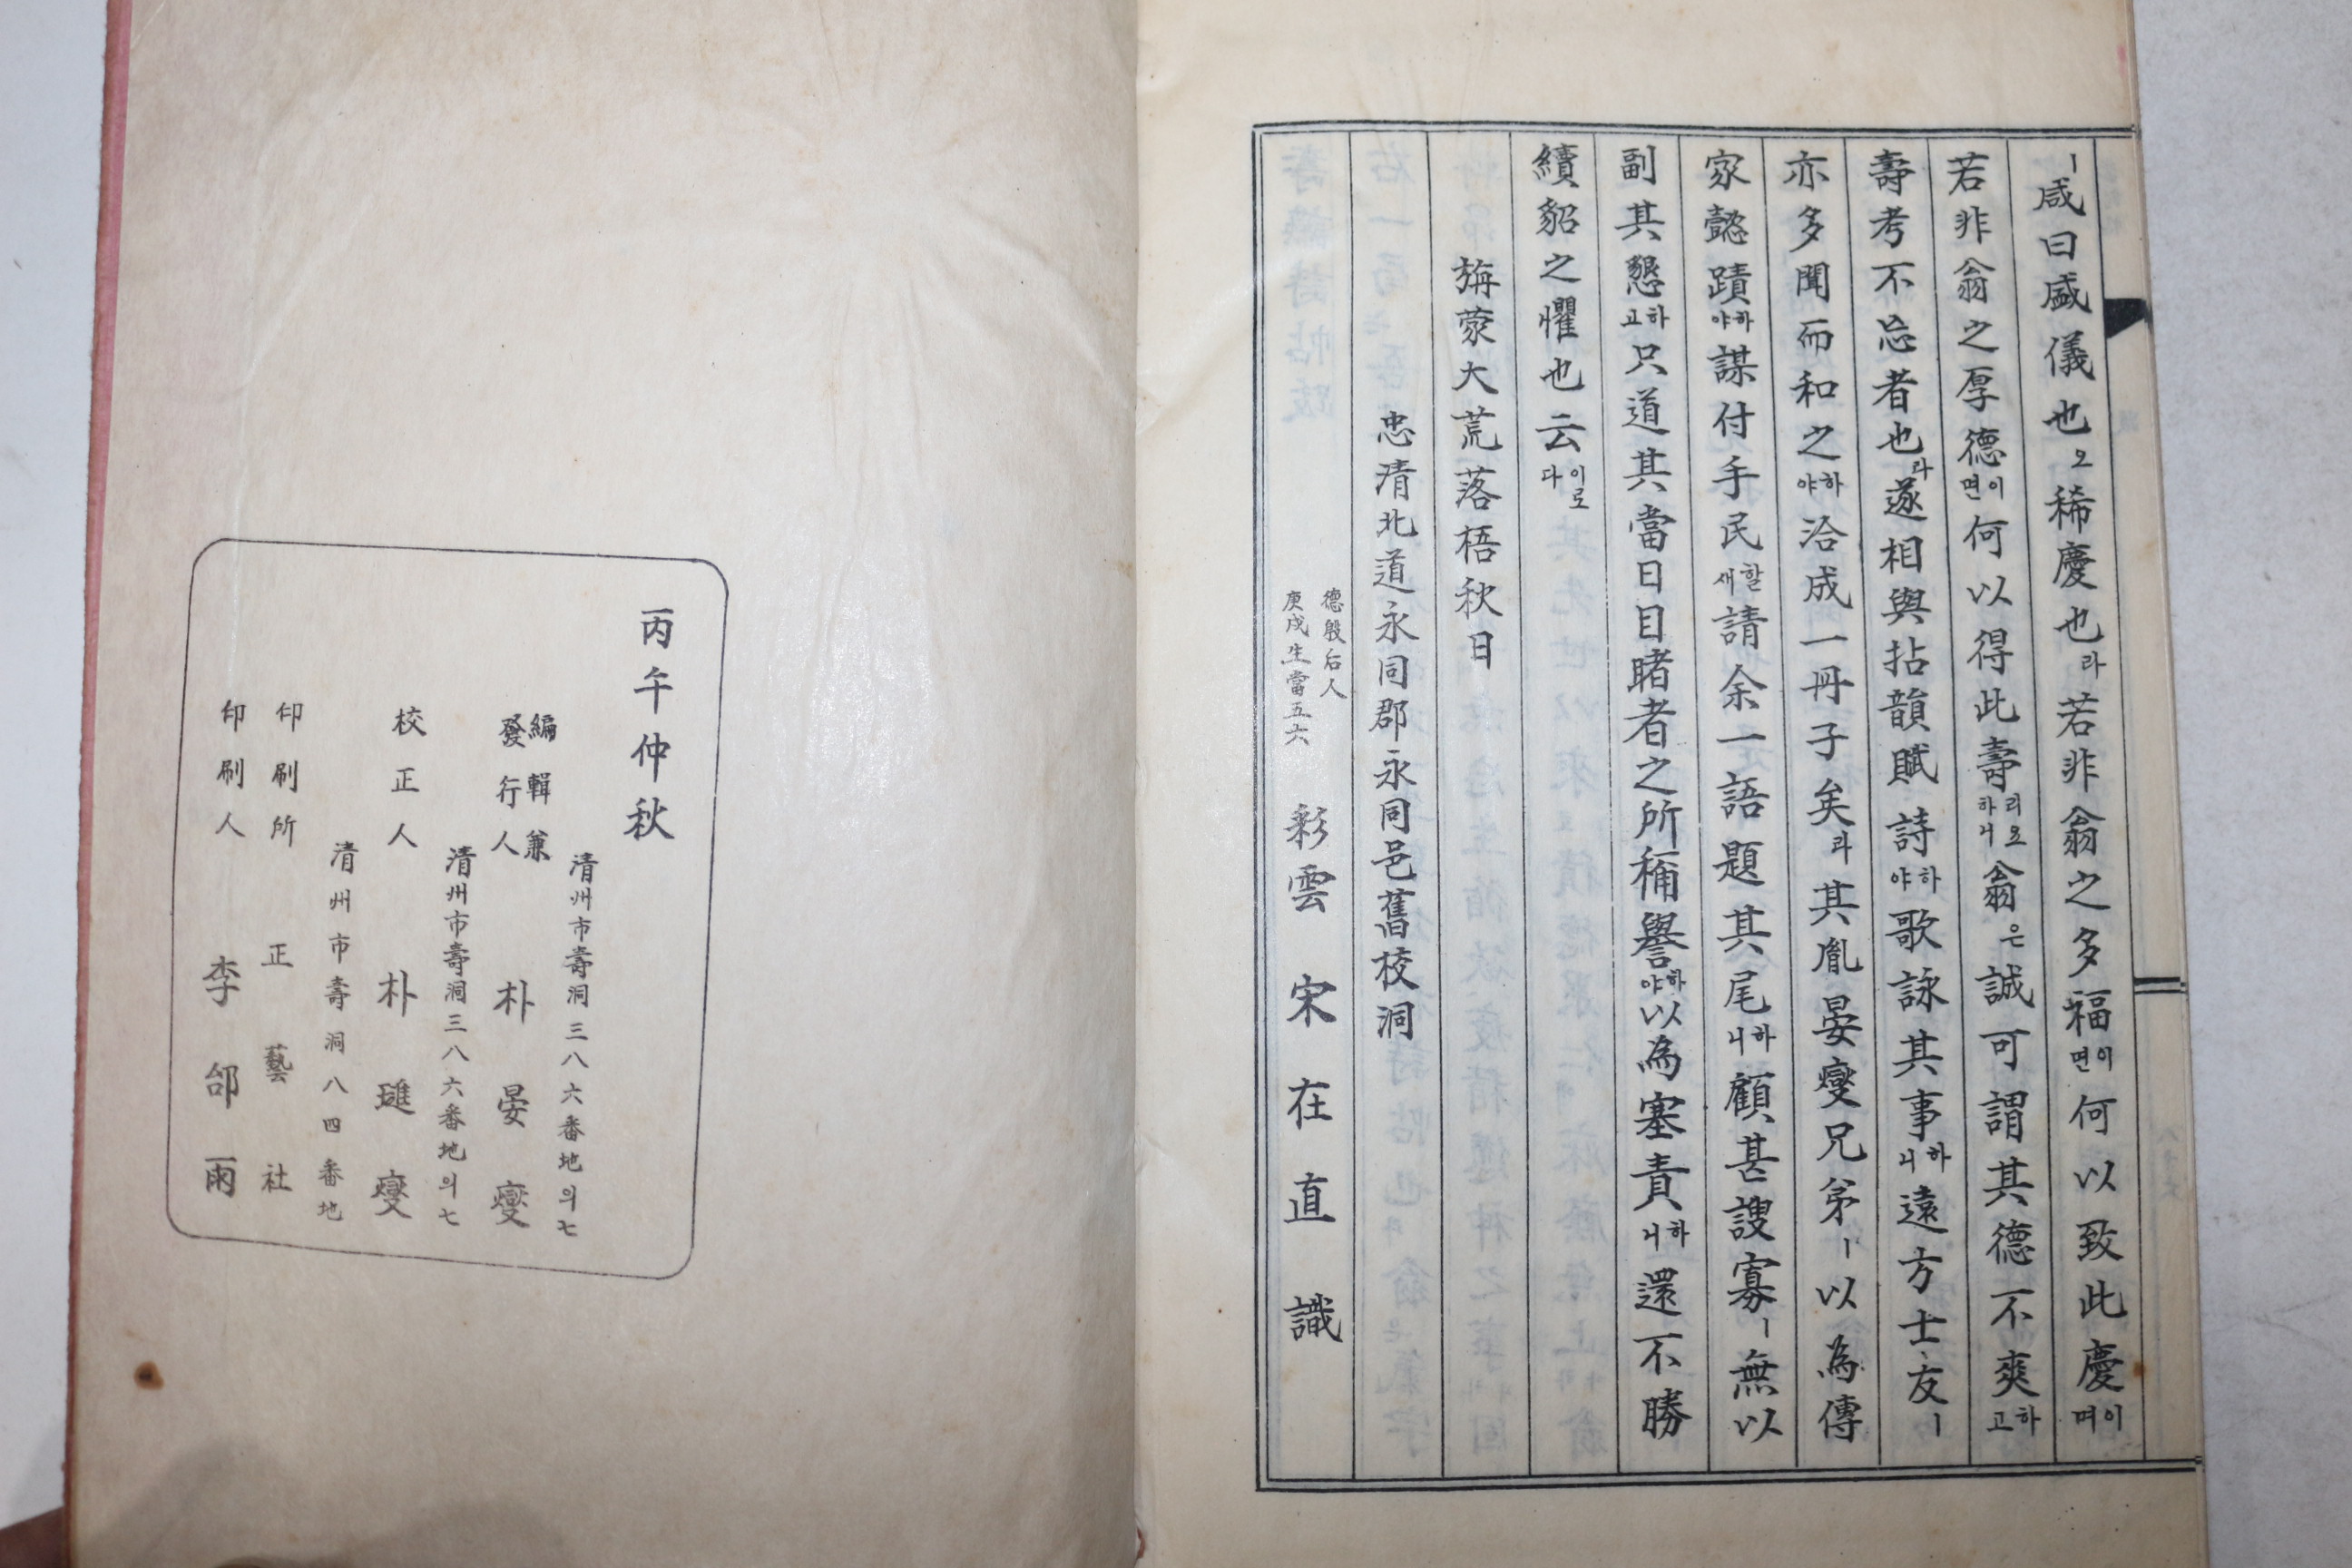 ㅣ咸曰盛儀也오稀慶也라若非翁之多福이면何以致此慶이며
若非翁之厚德이면何以得此壽리오하니翁은誠可謂其德不爽하고
壽考不忘者也라遂相與拈韻賦詩하야歌詠其事하니遠方士友ㅣ
亦多聞而和之하야洽成一冊子矣라其胤晏燮兄弟ㅣ以為傳
家懿蹟하야謀付手民할새請余一語題其尾하니顧甚謏寡ㅣ無以
副其懇하고只道其當日目睹者之所稱譽하야以為塞責하니還不勝
續貂之懼也云이로다
旃蒙大荒落梧秋日
忠清北道永同郡永同邑舊校洞
德殷后人
庚戌生當五六
彩雲 宋在直 識
丙午仲秋
清州市壽洞三八六番地의七
編輯兼
發行人 朴晏燮
清州市壽洞三八六番地의七
校正人 朴璡燮
清州市壽洞八四番地
印刷所 正藝社
印刷人 李邰雨